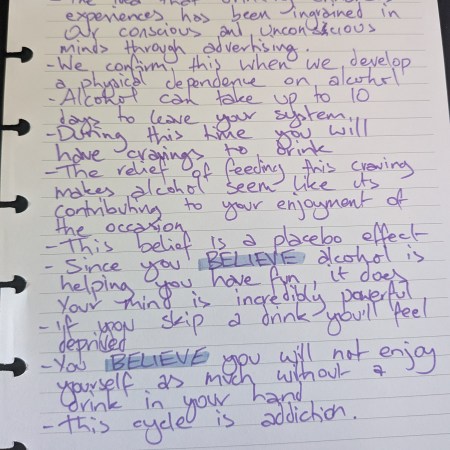 - The idea that drinking enhances
experiences has been ingrained in
our conscious and unconscious
minds through advertising.
- We confirm this when we develop
a physical dependence on alcohol
- Alcohol can take up to 10
days to leave your system.
- During this time you will
have cravings to drink
- The relief of feeding this craving
makes alcohol seem like its
contributing to your enjoyment of
the occasion
- This belief is a placebo effect
- Since you BELIEVE alcohol is
helping you have fun, it does
Your mind is incredibly powerful
- if you skip a drink you'll feel
deprived
- You BELIEVE you will not enjoy
yourself as much without a
drink in your hand
- this cycle is addiction.